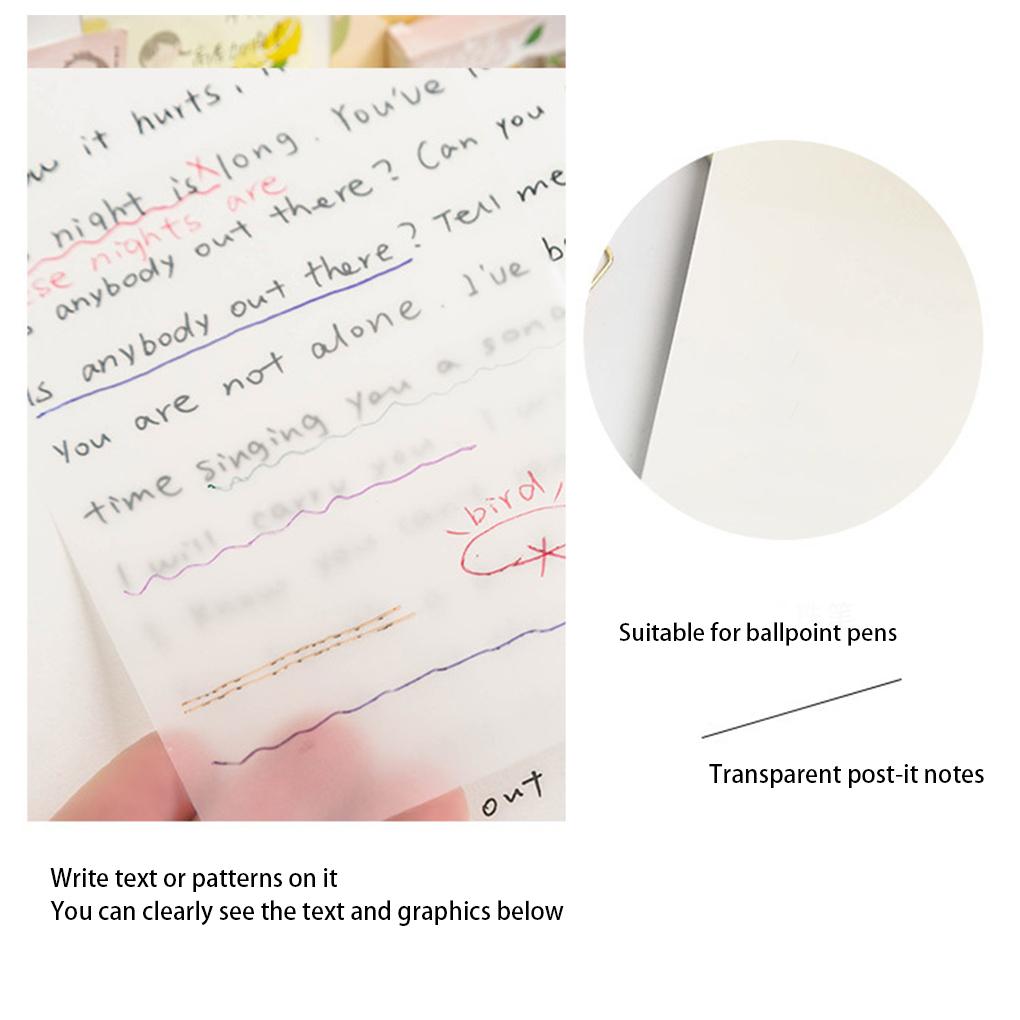 it hurts,
night is x long. You've
nights are
anybody out there? Can you
is anybody out there? Tell me
You are not alone. I've
time singing you a song
I will carry you. I
I know you
bird,
out
Suitable for ballpoint pens
Transparent post-it notes
Write text or patterns on it
You can clearly see the text and graphics below